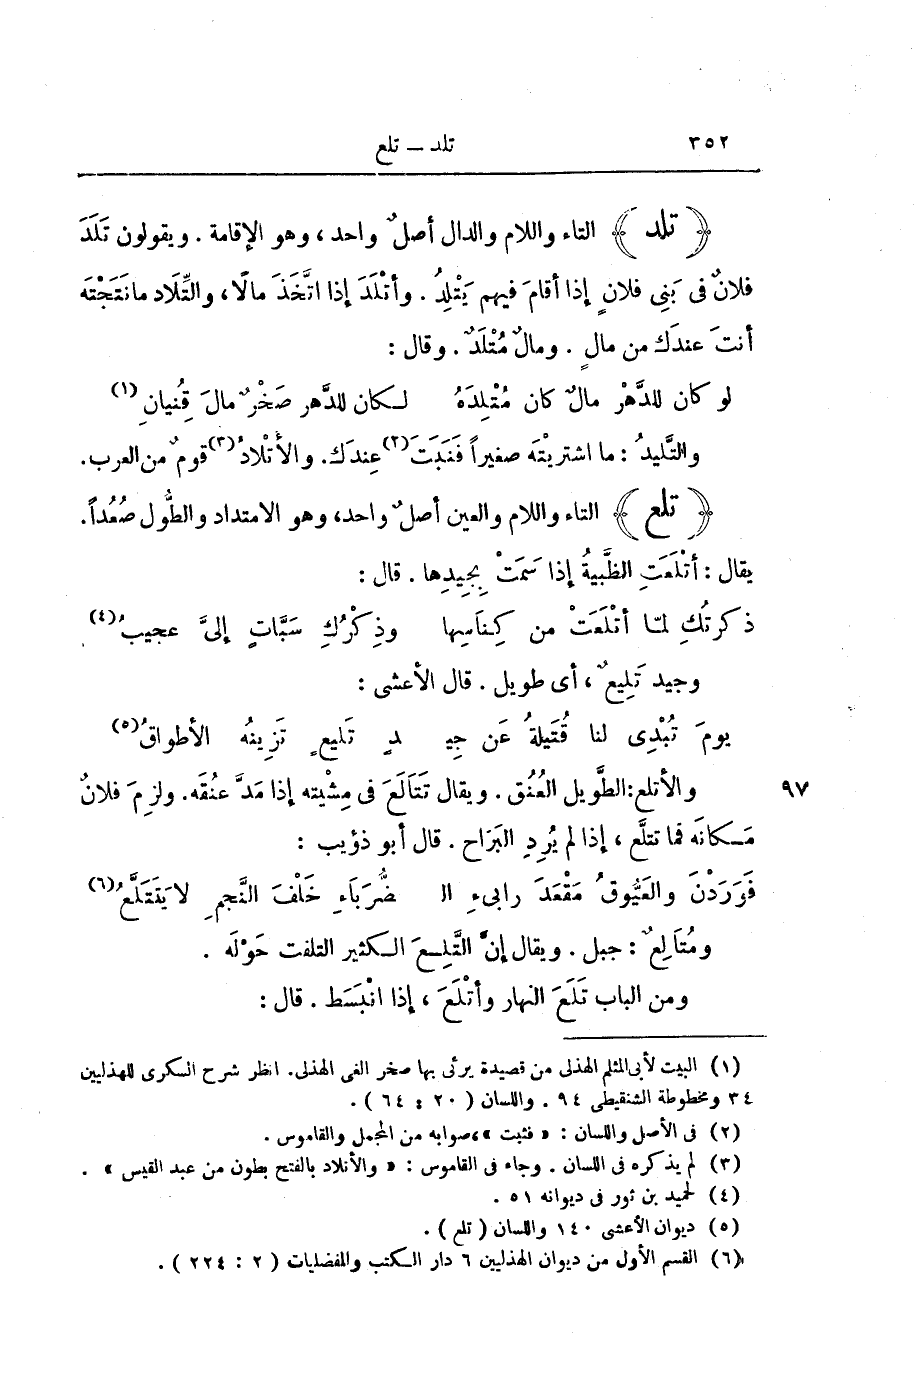 ٣٥٢ تلد — تلع
﴿ تلد ﴾ التاء واللام والدال أصلٌ واحد، وهو الإقامة . ويقولون تَلَدَ
فلانٌ فى بَنِى فلانٍ إذا أقامَ فيهم يَتْلِدُ . وأتْلَدَ إذا اتَّخَذَ مالًا، والتِّلَاد مانَتَجْتَه
أنتَ عندَك من مالٍ . ومالٌ مُتْلَدٌ . وقال :
لو كان للدَّهْر مالٌ كان مُتْلِدَهُ لكان للدَّهر صَخْرٌ مالَ قُِنيانِ(١)
والتَّليدُ : ما اشتريْتَه صغيراً فَنَبَتَ(٢) عِندَك. والأَتْلادُ(٣) قومٌ من العرب.
﴿ تلع ﴾ التاء واللام والعين أصلٌ واحد، وهو الامتداد والطُّول صُعُداً.
يقال : أتْلَعَتِ الظَّبيةُ إذا سَمَتْ بِجِيدِها . قال :
ذكرتُكِ لمّا أتْلَعَتْ من كِناسِها وذِكْرُكِ سَبَّاتٍ إلىَّ عجيبُ(٤)
وجيد تَلِيعٌ ، أى طويل . قال الأعشى :
يومَ تُبْدِى لنا قُتَيلةُ عَن جِيـ ـدٍ تَليعٍ تَزِينُه الأطواقُ(٥)
٩٧ والأتلع: الطَّويل العُنُق . ويقال تَتَالَعَ فى مِشْيته إذا مَدَّ عنُقَه. ولزِمَ فلانٌ
مَكانَه فما تتلَّع ، إذا لم يُرِدِ البَرَاح . قال أبو ذؤيب :
فَوَرَدْنَ والعَيُّوقُ مَقْعَدَ رابىءِ الـ ـضُّرَبَاءِ خَلْفَ النَّجمِ لا يَتَتَلَّعُ(٦)
ومُتَالِعٌ : جبل . ويقال إنَّ التَّلِعَ الكثير التلفت حَوْلَه .
ومن الباب تَلَعَ النهار وأَتْلَعَ ، إذا انْبَسَط . قال :
(١) البيت لأبى المثلم الهذلى من قصيدة يرثى بها صخر الغى الهذلى. انظر شرح السكرى للهذليين
٣٤ ومخطوطة الشنقيطى ٩٤ . واللسان ( ٢٠ : ٦٤ ) .
(٢) فى الأصل واللسان : « فثبت »، صوابه من المجمل والقاموس .
(٣) لم يذكره فى اللسان . وجاء فى القاموس : « والأتلاد بالفتح بطون من عبد القيس » .
(٤) لحميد بن ثور فى ديوانه ٥١ .
(٥) ديوان الأعشى ١٤٠ واللسان ( تلع ) .
(٦) القسم الأول من ديوان الهذليين ٦ دار الكتب والمفضليات ( ٢ : ٢٢٤ ) .